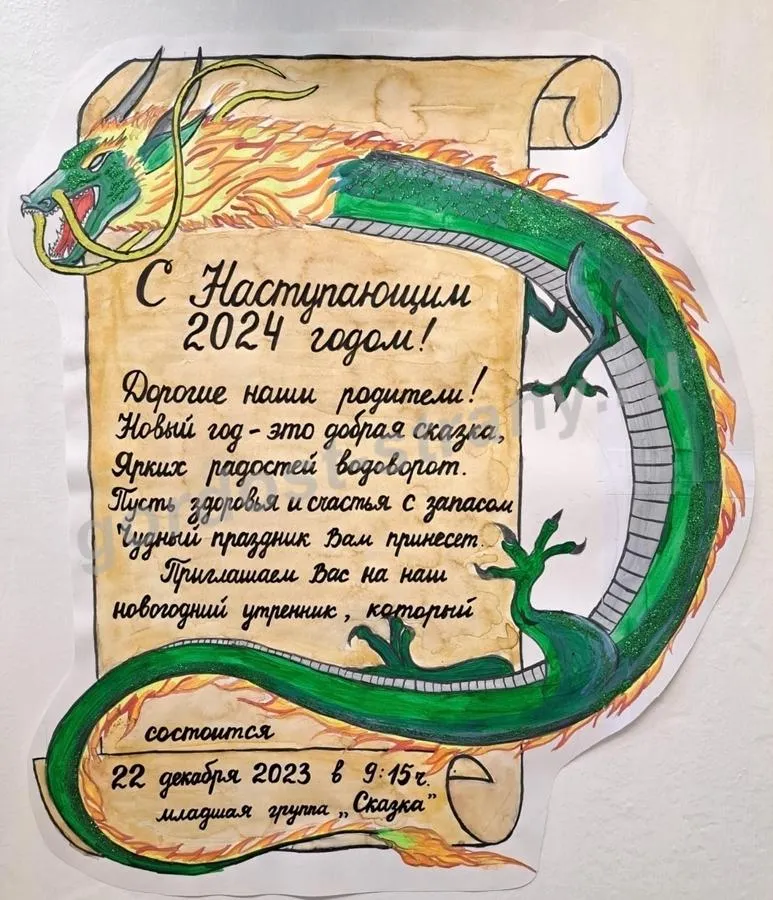 С Наступающим
2024 годом!
Дорогие наши родители!
Новый год - это добрая сказка,
Ярких радостей водоворот.
Пусть здоровья и счастья с запасом
Чудный праздник Вам принесет.
Приглашаем Вас на наш
новогодний утренник, который
состоится
22 декабря 2023 в 9:15ч.
младшая группа „Сказка"
gordost-strany.ru